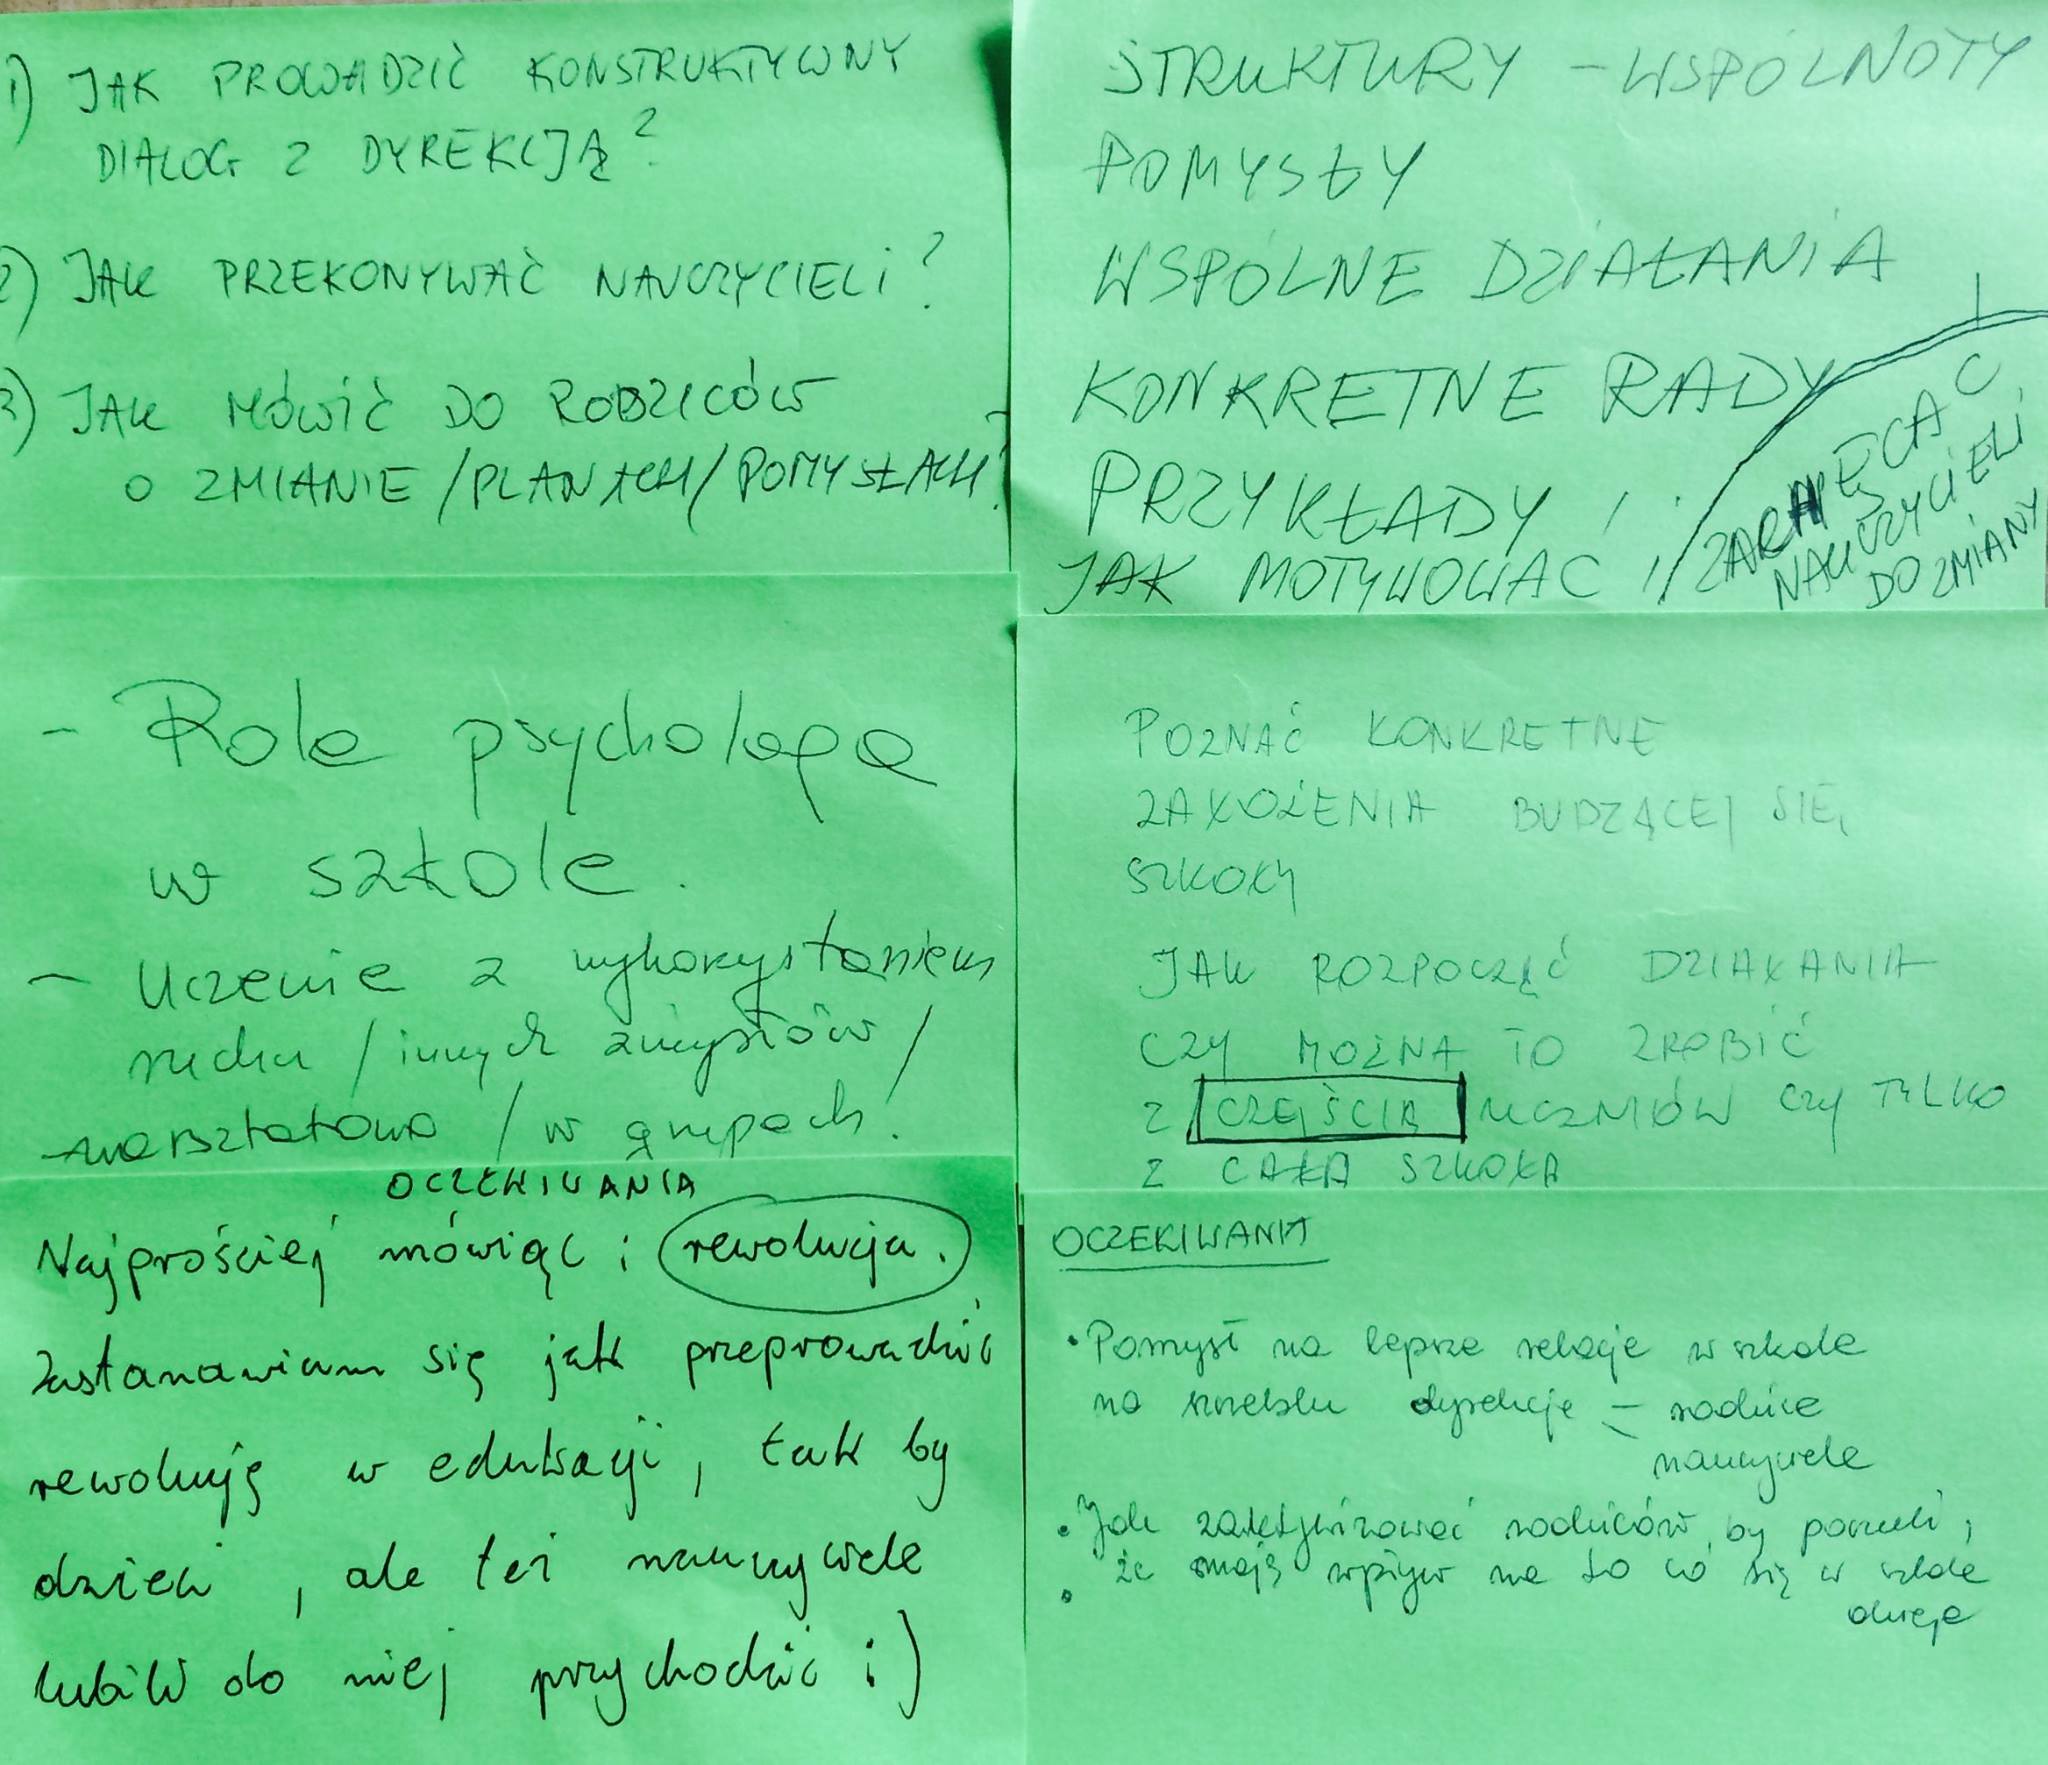 1) JAK PROWADZIĆ KONSTRUKTYWNY
DIALOG Z DYREKCJĄ?
2) JAK PRZEKONYWAĆ NAUCZYCIELI?
3) JAK MÓWIĆ DO RODZICÓW
O ZMIANIE / PLANACH / POMYSŁACH?
STRUKTURY – WSPÓLNOTY
POMYSŁY
WSPÓLNE DZIAŁANIA
KONKRETNE RADY
PRZYKŁADY
JAK MOTYWOWAC
NAUCZYCIELI
DO ZMIANY
- Rola psychologa
w szkole.
- Uczenie z wykorzystaniem
ruchu / innych zmysłów /
warsztatowo / w grupach!
POZNAĆ KONKRETNE
ZAŁOŻENIA BUDZĄCEJ SIĘ
SZKOŁY
JAK ROZPOCZĄĆ DZIAŁANIA
CZY MOŻNA TO ZROBIĆ
Z CZĘŚCIĄ UCZNIÓW CZY TYLKO
Z CAŁĄ SZKOŁĄ
OCZEKIWANIA
Najprościej mówiąc : rewolucja.
Zastanawiam się jak przeprowadzić
rewolucję w edukacji, tak by
dzieci, ale też nauczyciele
lubili do niej przychodzić :)
OCZEKIWANIA
• Pomysł na lepsze relacje w szkole
na szczeblu dyrekcja – rodzice
nauczyciele
• Jak zaktywizować rodziców, by poczuli,
• że mają wpływ na to co się w szkole
dzieje